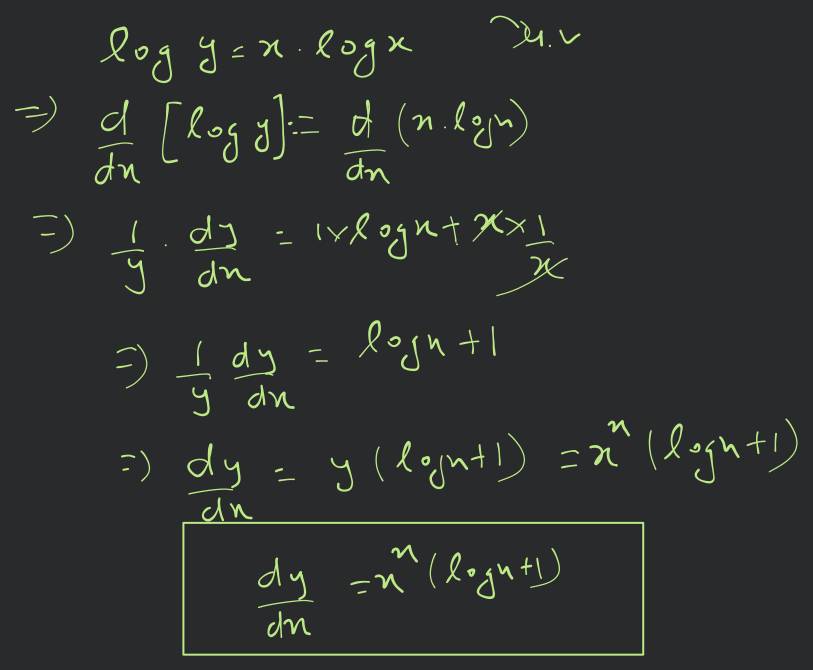 log y = x · log x u.v
=> d/dx [log y] = d/dx (x · log x)
=> 1/y · dy/dx = 1 × log x + x × 1/x
=> 1/y dy/dx = log x + 1
=> dy/dx = y (log x + 1) = x^x (log x + 1)
dy/dx = x^x (log x + 1)